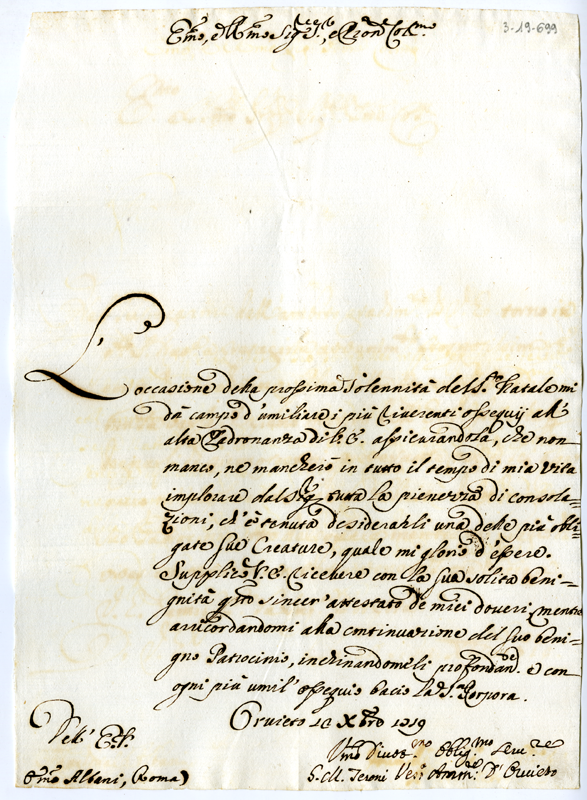 3-19-699
Em̃o, e R̃mo Sig.re Sig.re, e Pron̄e Col.mo
L'occasione della prossima Solennità del S.mo Natale mi
dà campo d'umiliare i più riverenti ossequij all'
alta Padronanza di V. E. assicurandola, che non
manco, ne mancherò in tutto il tempo di mia vita
implorare dal Sig.re tutta la pienezza di consola=
zioni, ch'è tenuta desiderarli una delle più obli=
gate sue Creature, quale mi glorio d'essere.
Supplico V. E. ricevere con la sua solita beni=
gnità q̄sto sincer'attestato de miei doveri, mentre
arricordandomi alla continuazione del suo beni=
gno Patrocinio, inchinandomeli profondam.te e con
ogni più umil' ossequio bacio la S. Porpora.
Orvieto 18 Xbre 1719
Dell' E. V.
Em̃o Albani, (Roma)
Um̃o Divot.mo Oblig.mo Serv.re
Amm.re D'Orvieto